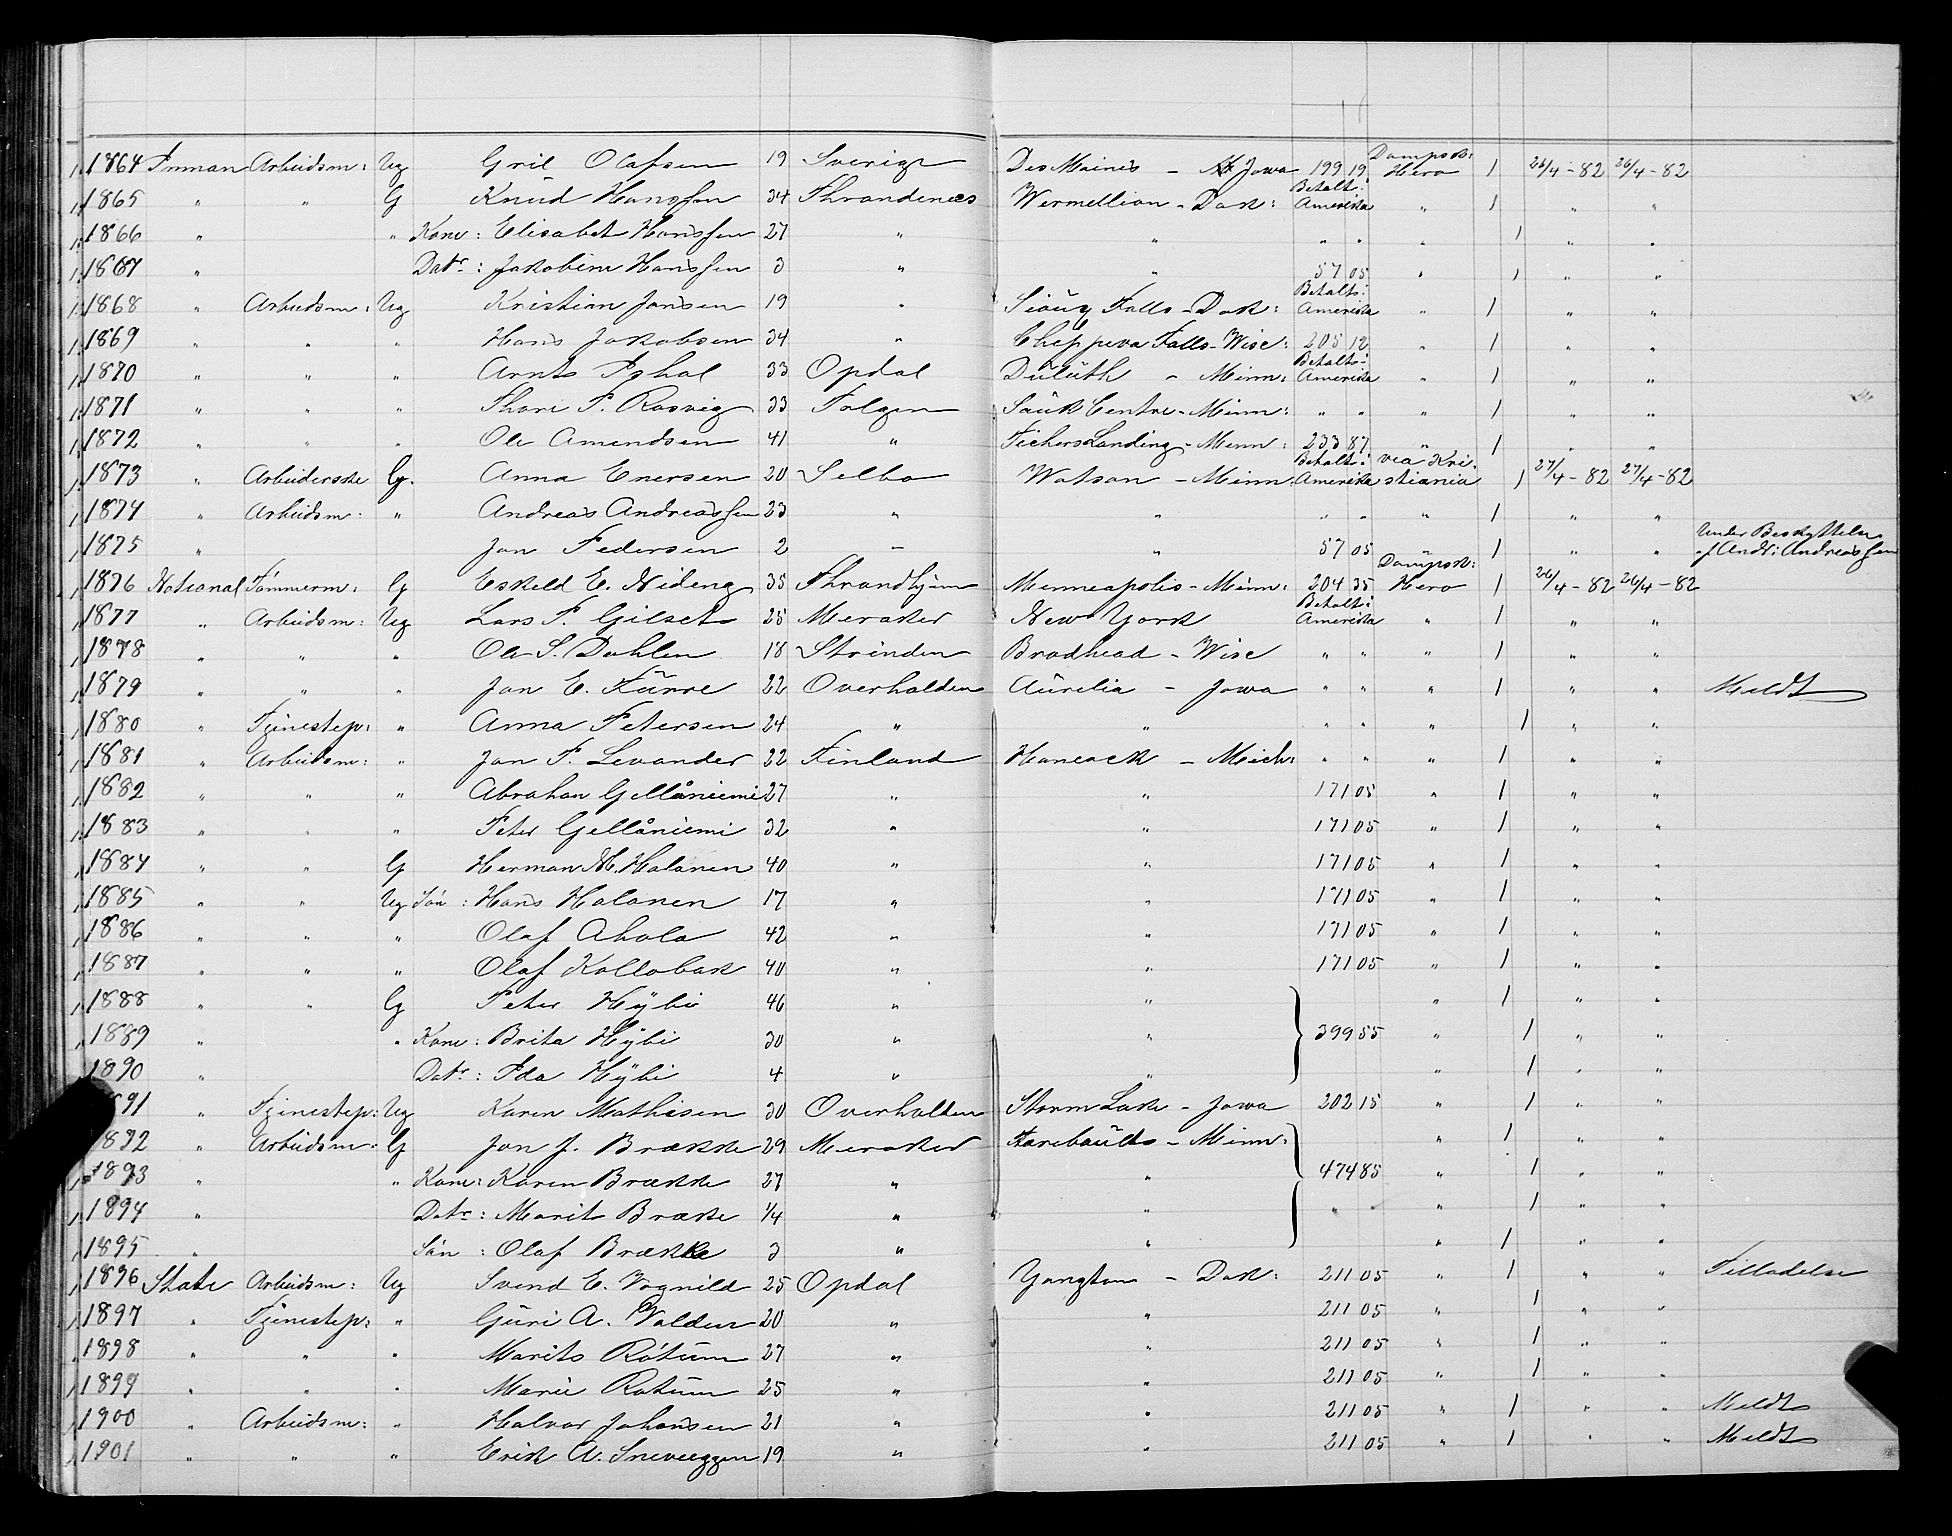 1864 Inman Arbeidsm: Ug Gril Olafsen 19 Sverige Des Moines - Iowa 199 19 Dampsk: Hero 1 26/4-82 26/4-82
1865 " " G Knud Hanssen 34 Thrandenæs Wermellion - Dak: Betalt i Amerika " 1 " "
1866 " " Kone: Elisabet Hanssen 27 " " " " " 1 " "
1867 " Datr: Jakobine Hanssen 3 " " 57 05 " 1 " "
1868 " Arbeidsm: Ug Kristian Jansen 19 " Sioux Falls - Dak: Betalt i Amerika " 1 " "
1869 " " " Hans Jakobsen 34 " Cheppeva Falls - Wisc: 205 12 " 1 " "
1870 " " " Arnt 33 Opdal Duluth - Minn: Betalt i Amerika " 1 " "
1871 " " " Thore P. Rosvig 33 Folgen Sauk Centre - Minn: " " " 1 " "
1872 " " " Ole Amundsen 41 " Fichers Landing - Minn: 233 87 " 1 " "
1873 " Arbeiderske G. Anna Enersen 20 Selbo Watson - Minn: Betalt i Amerika via Kristiania 1 27/4-82 27/4-82
1874 " Arbeidsm: " Andreas Andreassen 23 " " " " " 1 " "
1875 " Jon Pedersen 2 " " 57 05 " 1 " " Under Beskyttelse af Andr: Andreassen
1876 National Tømmerm: G Eskeld E. Nideng 35 Thrandhjem Menneapolis - Minn: 204 35 Dampsk: Hero 1 26/4-82 26/4-82
1877 " Arbeidsm: Ug Lars P. Gilset 25 Meraker New York Betalt i Amerika " 1 " "
1878 " " " Ole S. Dahlen 18 Strinden Brodhead - Wisc " " " 1 " "
1879 " " " Jon E. Kurre 22 Overhalden Aurelia - Jowa " " " 1 " " Meldt
1880 " Tjenestep: " Anna Petersen 24 " " " " " 1 " "
1881 " Arbeidsm: " Jon P. Levander 22 Finland Hancock - Mich: " " " 1 " "
1882 " " " Abraham Gellåniemi 27 " " 171 05 " 1 " "
1883 " " " Peter Gellåniemi 32 " " 171 05 " 1 " "
1884 " " G Herman M. Halanen 40 " " 171 05 " 1 " "
1885 " " Ug Søn: Hans Halanen 17 " " 171 05 " 1 " "
1886 " " " Olaf Ahola 42 " " 171 05 " 1 " "
1887 " " " Olaf Kollobak 40 " " 171 05 " 1 " "
1888 " " G Peter Hÿbi 46 " " " 1 " "
1889 " " Kone: Brita Hÿbi 30 " " 399 55 " 1 " "
1890 " Datr: Ida Hÿbi 4 " " " 1 " "
1891 " Tjenestep: Ug Karen Mathisen 30 Overhalden Storm Lake - Jowa 202 15 " 1 " "
1892 " Arbeidsm: G Jon J. Brække 29 Meraker Farebaults - Minn: " 1 " "
1893 " " Kone: Karen Brække 27 " " 474 85 " 1 " "
1894 " Datr: Marit Bræke 1/4 " " " " " 1 " "
1895 " Søn: Olaf Brække 3 " " " 1 " "
1896 State Arbeidsm: Ug Svend E. Vognild 25 Opdal Yangton - Dak: 211 05 " 1 " " Tilladelse
1897 " Tjenestep: " Guri A. Volden 20 " " 211 05 " 1 " "
1898 " " " Marit Røtum 27 " " 211 05 " 1 " "
1899 " " " Marie Rotum 25 " " 211 05 " 1 " "
1900 " Arbeidsm: " Halvor Johansen 21 " " 211 05 " 1 " " Meldt
1901 " " " Erik A. Sneveeggen 19 " " 211 05 " 1 " " Meldt